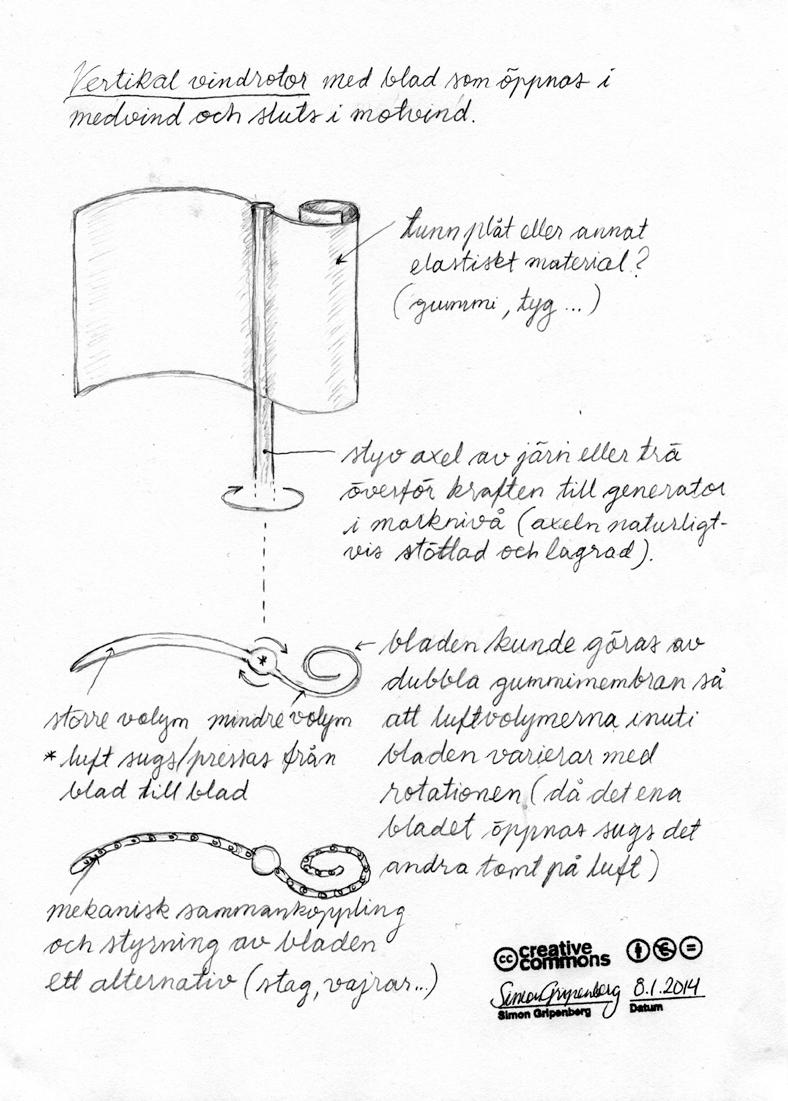 Vertikal vindrotor med blad som öppnas i
medvind och sluts i motvind.
tunn plåt eller annat
elastiskt material?
(gummi, tyg ...)
styv axel av järn eller trä
överför kraften till generator
i marknivå (axeln naturligt-
vis stöttad och lagrad).
bladen kunde göras av
dubbla gummimembran så
att luftvolymerna inuti
bladen varierar med
rotationen (då det ena
bladet öppnas sugs det
andra tomt på luft)
större volym mindre volym
* luft sugs/pressas från
blad till blad
*
mekanisk sammankoppling
och styrning av bladen
ett alternativ (stag, vajrar...)
cc creative
commons
Simon Gripenberg 8.1.2014
Simon Gripenberg Datum